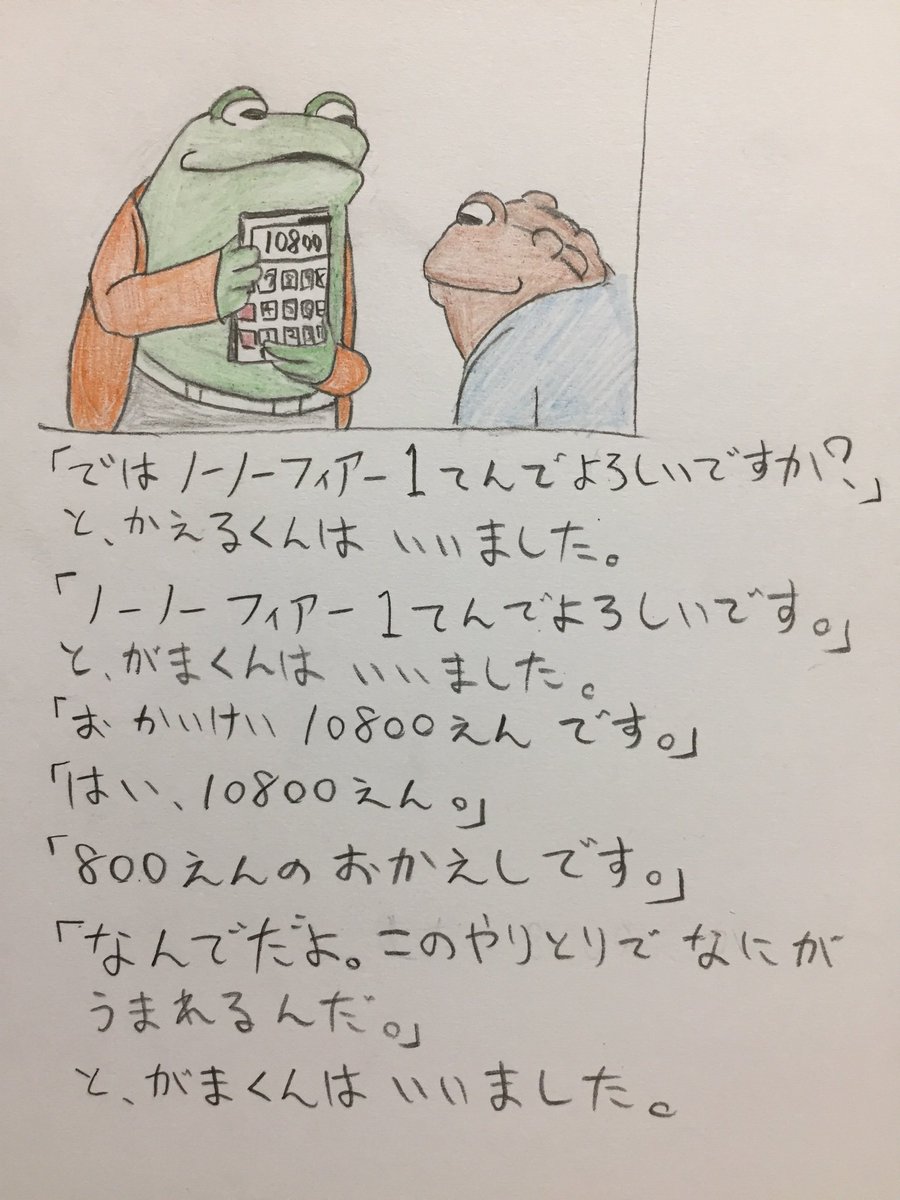 10800
「では ノーノーフィアー1てんでよろしいですか?」
と、かえるくんは いいました。
「ノーノー フィアー1てんでよろしいです。」
と、がまくんは いいました。
「お かいけい 10800えん です。」
「はい、10800えん。」
「800えんの おかえしです。」
「なんでだよ。このやりとりで なにが
うまれるんだ。」
と、がまくんは いいました。